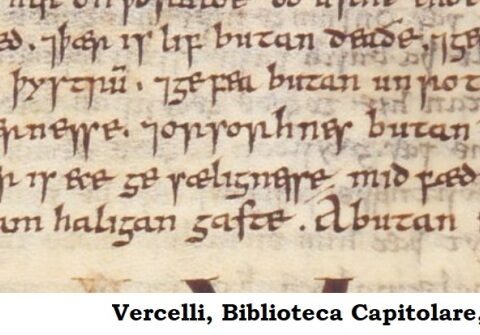 ed. ⁊ þær is lif butan deaðe. ⁊ ge
þystrū. ⁊ ge fea butan unrot
ernesse. ⁊ orsorhnes butan
is ece ge sælignesse mid fæd
on haligan gaste. A butan
Vercelli, Biblioteca Capitolare,